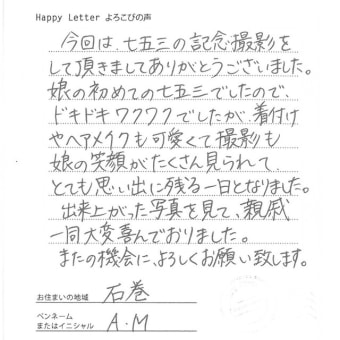 Happy Letter よろこびの声
今回は、七五三の記念撮影を
して頂きましてありがとうございました。
娘の初めての七五三でしたので、
ドキドキワクワクでしたが、着付け
やヘアメイクも可愛くて撮影も
娘の笑顔がたくさん見られて、
とても思い出に残る一日となりました。
出来上がった写真を見て、親戚
一同大変喜んでおりました。
またの機会に、よろしくお願い致します。
お住まいの地域 石巻
ペンネーム
またはイニシャル A・M